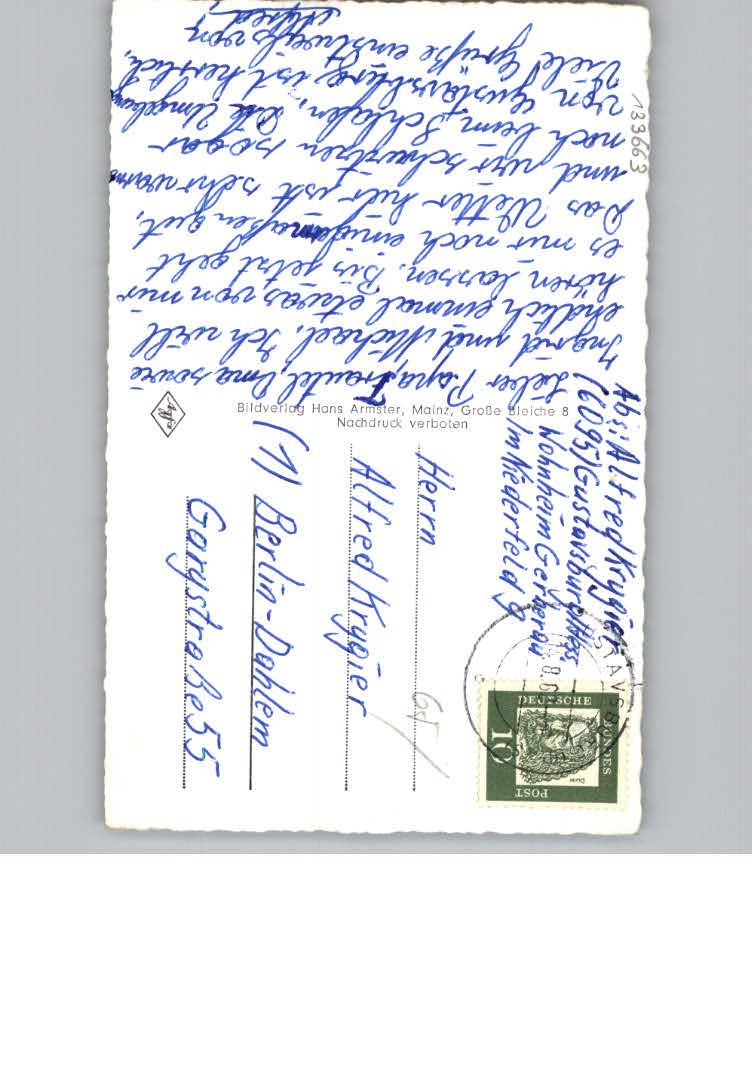 Lieber Papa, Trautel, Oma sowie
Ingrid und Michael. Ich will
endlich einmal etwas von mir
hören lassen. Bis jetzt geht
es mir noch einigermaßen gut.
Das Wetter hier ist sehr warm
und wir schwitzen sogar
noch beim Schlafen. Die Umgebung
von Gustavsburg ist herrlich.
Viele Grüße einstweils von
Alfred
133663
Bildverlag Hans Armster, Mainz, Große Bleiche 8
Nachdruck verboten
Agfa
Abs: Alfred Krygier
(6095) Gustavsburg/Hess.
Wohnheim Gerberau
Im Niederfeld 9
DEUTSCHE
BUNDES
POST
10
Dürer
Herrn
Alfred Krygier
(1) Berlin-Dahlem
Garystraße 55